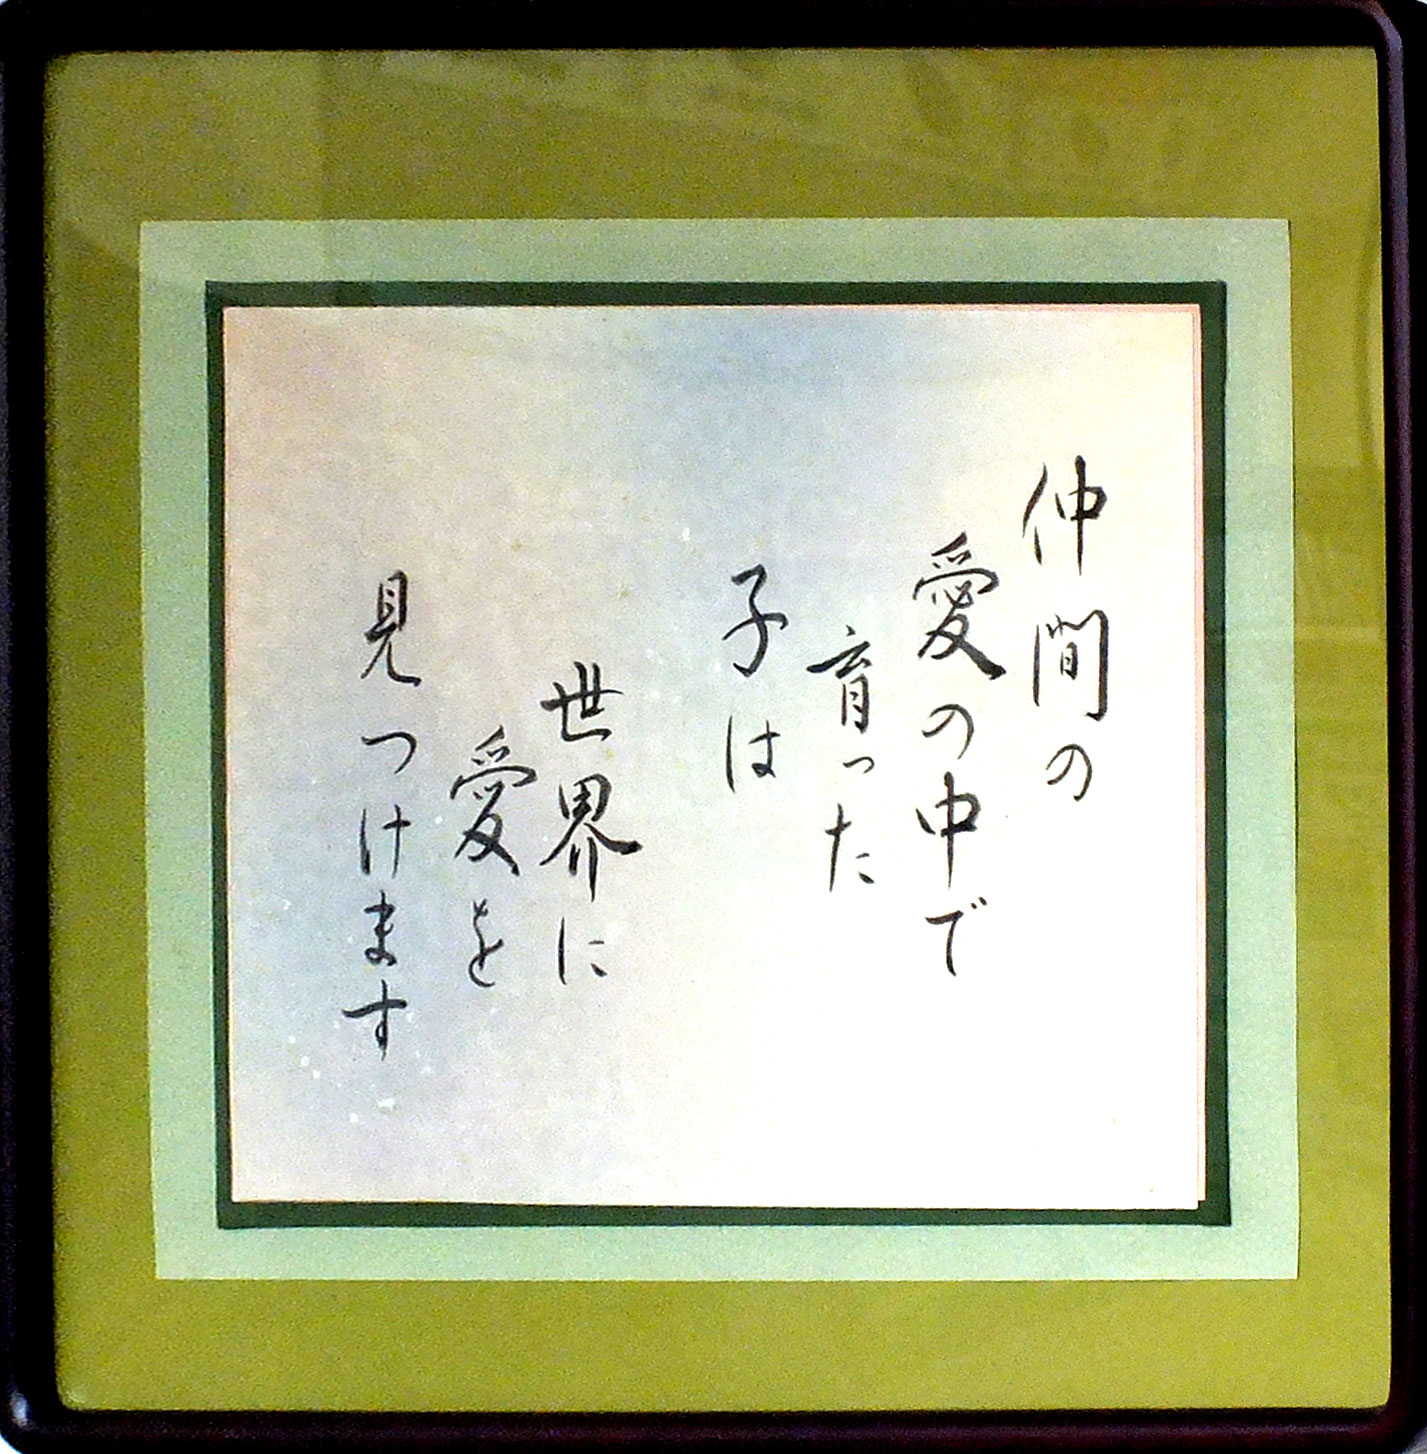 仲間の
愛の中で
育った
子は
世界に
愛を
見つけます